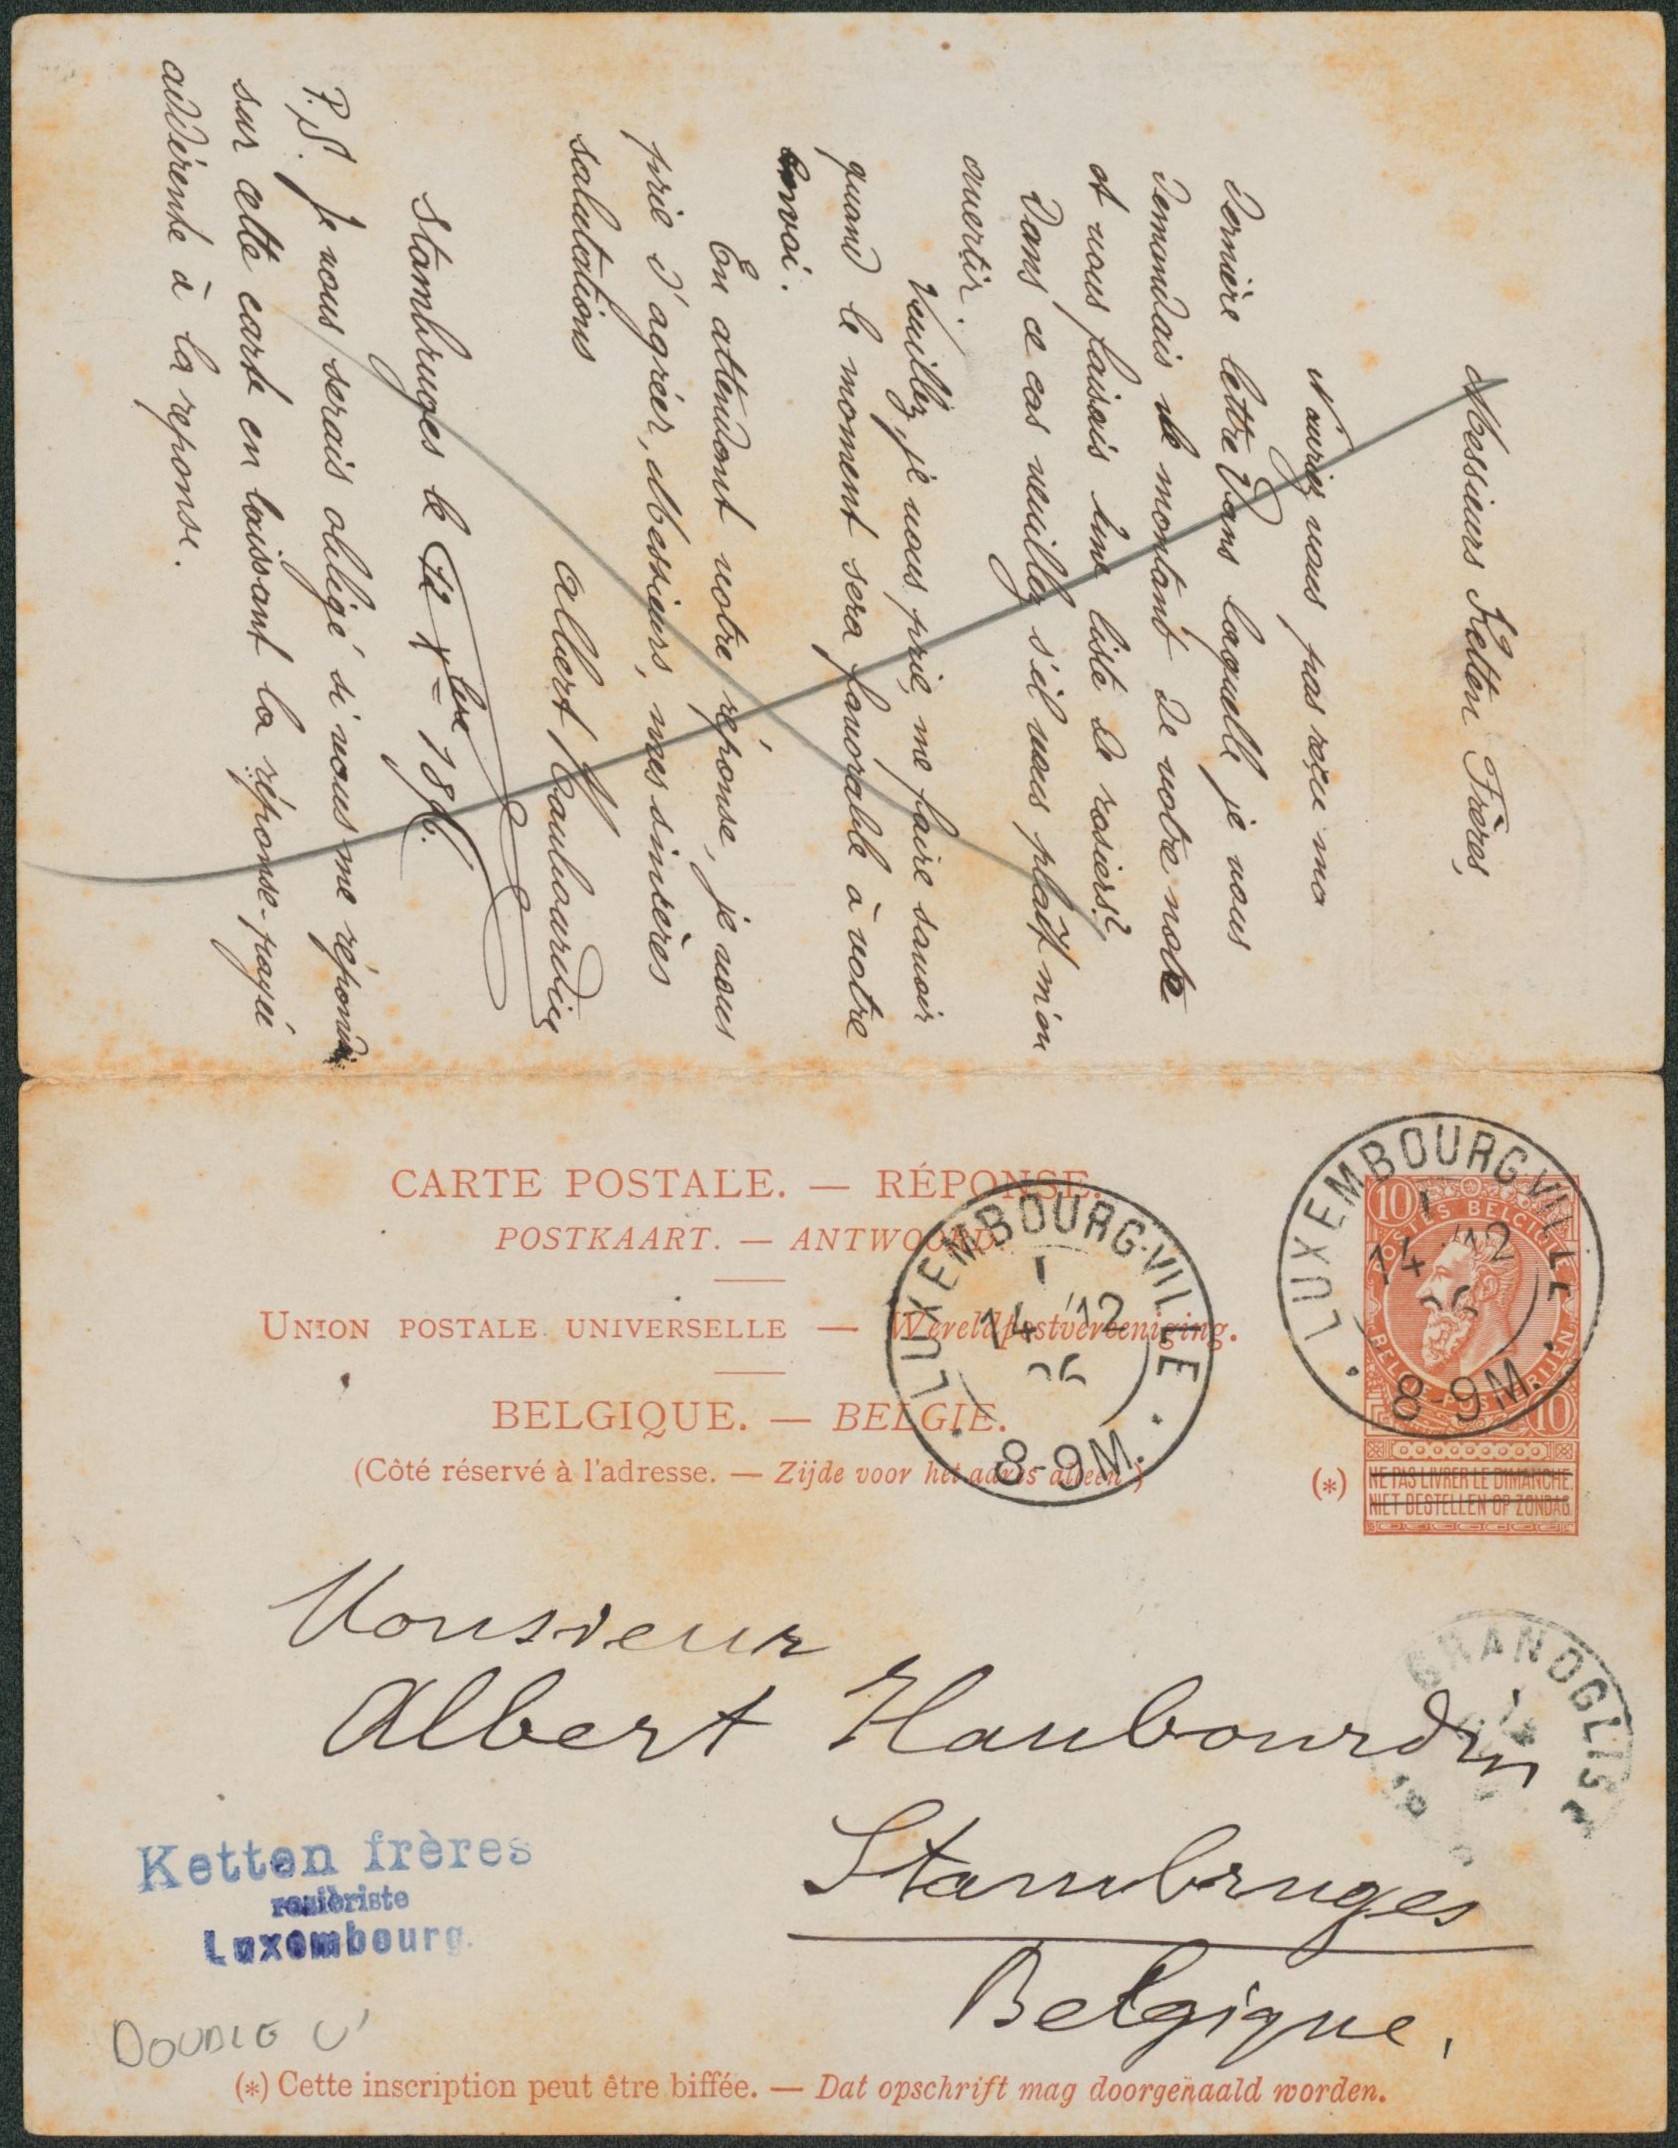 Messieurs Ketten Frères,
N'auriez vous pas reçu ma
dernière lettre dans laquelle je vous
demandais le montant de votre note
et vous faisais une liste de rosiers?
Dans ce cas veuillez s'il vous plaît m'en
avertir.
Veuillez, je vous prie, me faire savoir
quand le moment sera favorable à votre
envoi.
En attendant votre réponse, je vous
prie d'agréer, Messieurs, mes sincères
salutations
Albert Haubourdin
Stambruges le 12 Xbre 1896.
P.S. Je vous serais obligé si vous me répondiez
sur cette carte en laissant la réponse-payée
adhérente à la reponse.
CARTE POSTALE. — RÉPONSE.
POSTKAART. — ANTWOORD.
UNION POSTALE UNIVERSELLE — Wereldpostvereeniging.
BELGIQUE. — BELGIE.
(Côté réservé à l'adresse. — Zijde voor het adres alleen.)
LUXEMBOURG-VILLE
14 12
96
8-9M.
LUXEMBOURG-VILLE
14 12
96
8-9M.
10
POSTES BELGIQUE
10
(*)
NE PAS LIVRER LE DIMANCHE.
NIET BESTELLEN OP ZONDAG.
Monsieur
Albert Haubourdin
Stambruges
Belgique.
GRANDGLISE
Ketten frères
rosièriste
Luxembourg.
DOUBLE U'
(*) Cette inscription peut être biffée. — Dat opschrift mag doorgehaald worden.